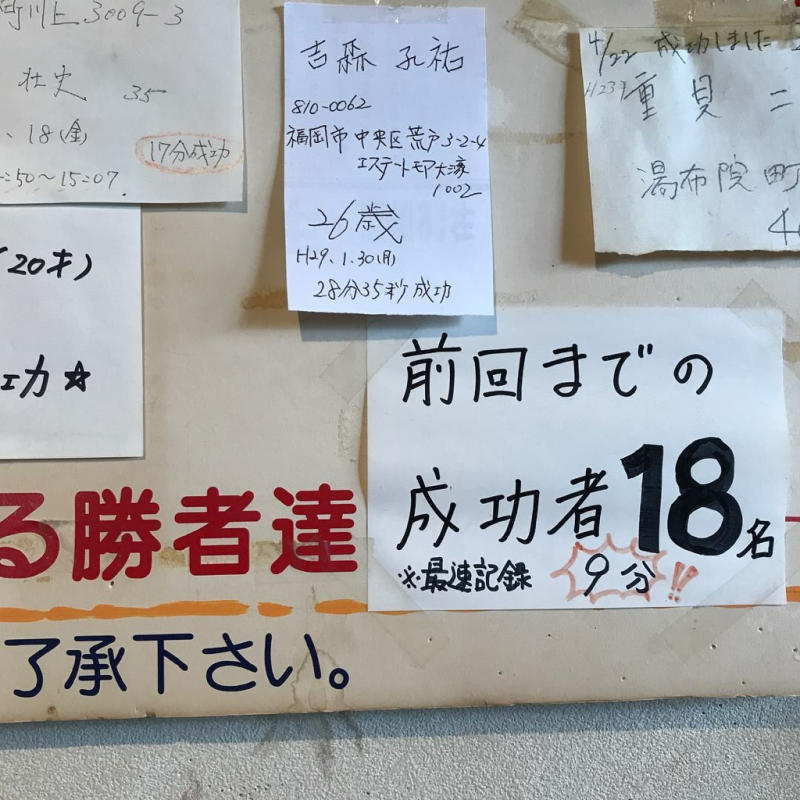 町川上3009-3
壮史 35
、18(金)
17分成功
:50～15:07.
(20才)
功☆
吉森 孔祐
810-0062
福岡市中央区荒戸3-2-4
エステートモア大濠
1002
26歳
H29.1.30(月)
28分35秒成功
4/22 成功しました
H23年
重見 二
湯布院町
前回までの
成功者18名
※最速記録 9分!!
る勝者達
了承下さい。